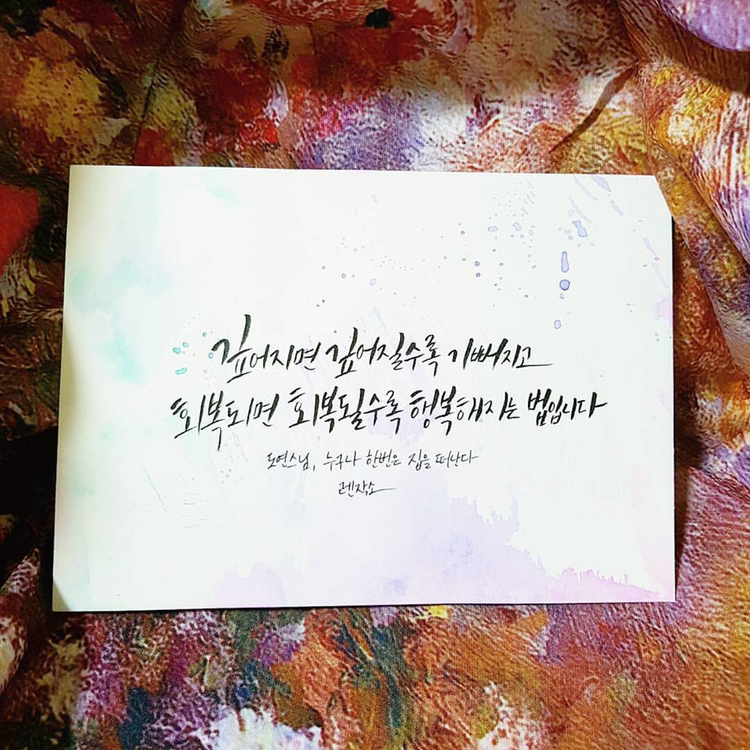 깊어지면 깊어질수록 기뻐지고
회복되면 회복될수록 행복해지는 법입니다
도연스님, 누구나 한번은 집을 떠난다
렌작소